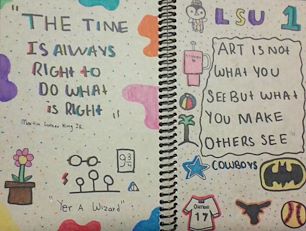 "THE TIME
IS ALWAYS
RIGHT TO
DO WHAT
IS RIGHT"
Martin Luther King JR.
"Yer A Wizard"
LSU 1
ART IS NOT
WHAT YOU
SEE BUT WHAT
YOU MAKE
OTHERS SEE
COWBOYS
17